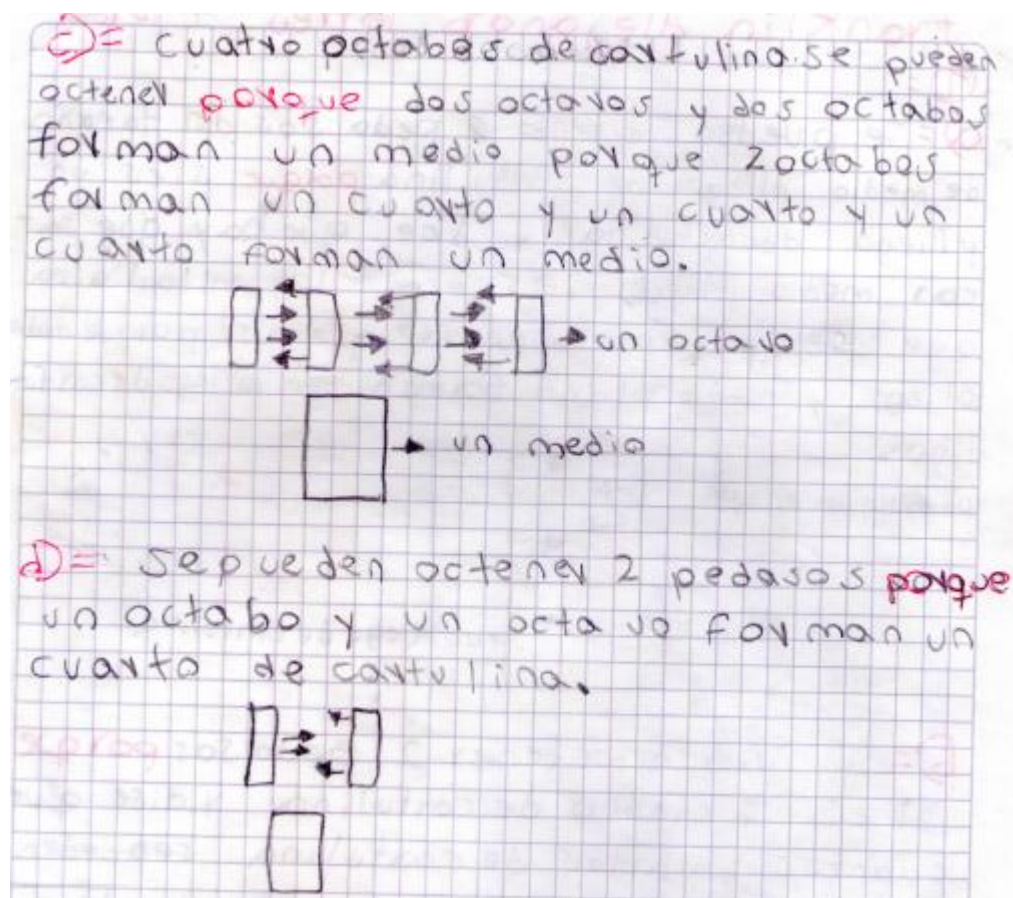 c)= cuatro octabos de cartulina.se pueden
octener porque dos octavos y dos octabos
forman un medio porque 2octabos
forman un cuarto y un cuarto y un
cuarto forman un medio.
un octavo
un medio
d)= se pueden octener 2 pedasos porque
un octabo y un octavo forman un
cuarto de cartulina.